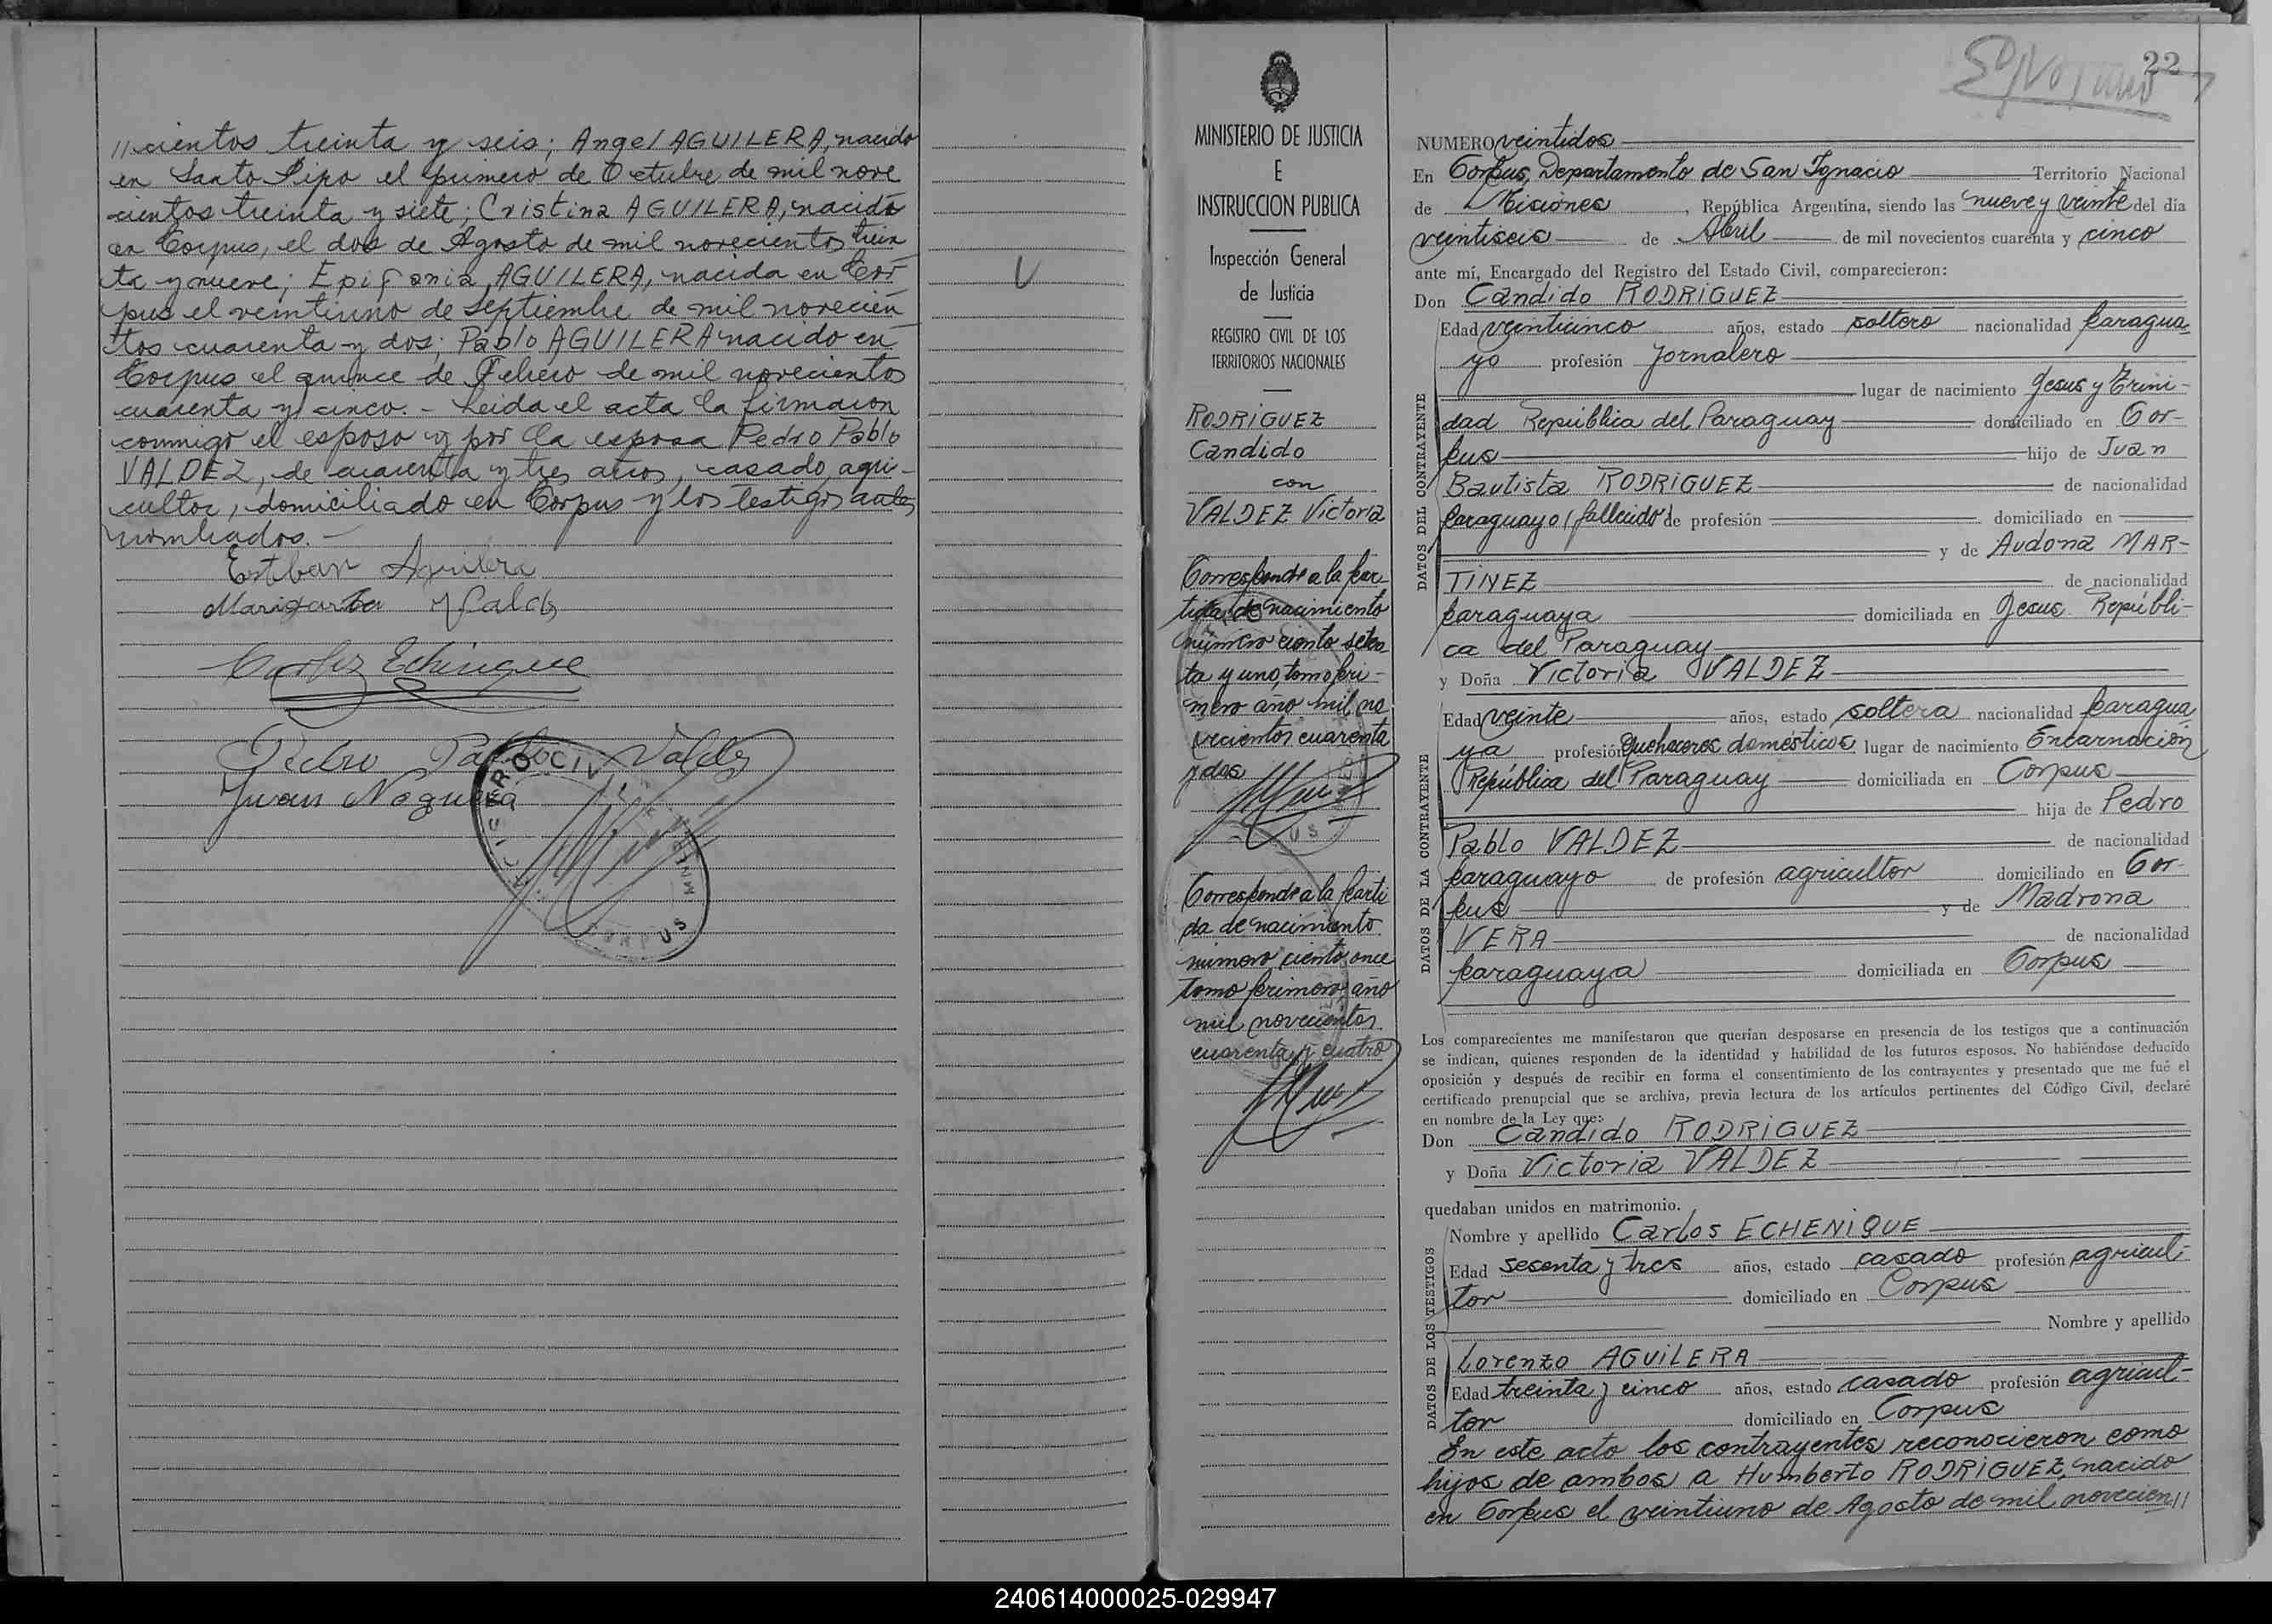 //cientos treinta y seis; Angel AGUILERA, nacido
en Santo Pipo el primero de Octubre de mil nove
cientos treinta y siete; Cristina AGUILERA, nacida
en Corpus, el dos de Agosto de mil novecientos trein
ta y nueve; Epifania AGUILERA, nacida en Cor-
pus el veintiuno de Septiembre de mil novecien-
tos cuarenta y dos; Pablo AGUILERA nacido en
Corpus el quince de Febrero de mil novecientos
cuarenta y cinco.- Leida el acta la firmaron
conmigo el esposo y por la esposa Pedro Pablo
VALDEZ, de cuarenta y tres años, casado, agri-
cultor, domiciliado en Corpus y los testigos antes
nombrados.-
Esteban Aguilera
Margarita
Carlos Echenique
Pedro Pablo Valdez
Juan Noguera
CIVIL
CORPUS
MINISTERIO DE JUSTICIA
E
INSTRUCCION PUBLICA
Inspección General
de Justicia
REGISTRO CIVIL DE LOS
TERRITORIOS NACIONALES
RODRIGUEZ
Candido
con
VALDEZ Victoria
Corresponde a la par-
tida de nacimiento
número ciento seten
ta y uno, tomo pri-
mero año mil no
vecientos cuarenta
y dos
Corresponde a la parti
da de nacimiento
número ciento once
tomo primero año
mil novecientos
cuarenta y cuatro
22
NUMERO veintidos
En Corpus, Departamento de San Ignacio Territorio Nacional
de Misiones, República Argentina, siendo las nueve y veinte del día
veintiseis de Abril de mil novecientos cuarenta y cinco
ante mí, Encargado del Registro del Estado Civil, comparecieron:
Don Candido RODRIGUEZ
DATOS DEL CONTRAYENTE
Edad veinticinco años, estado soltero nacionalidad paragua
yo profesión Jornalero
lugar de nacimiento Jesus y Trini-
dad República del Paraguay domiciliado en Cor-
pus hijo de Juan
Bautista RODRIGUEZ de nacionalidad
paraguayo (fallecido) de profesión domiciliado en
y de Audona MAR-
TINEZ de nacionalidad
paraguaya domiciliada en Jesus Repúbli-
ca del Paraguay
y Doña Victoria VALDEZ
DATOS DE LA CONTRAYENTE
Edad veinte años, estado soltera nacionalidad paragua
ya profesión quehaceres domésticos lugar de nacimiento Encarnación
República del Paraguay domiciliada en Corpus
hija de Pedro
Pablo VALDEZ de nacionalidad
paraguayo de profesión agricultor domiciliado en Cor-
pus y de Madrona
VERA de nacionalidad
paraguaya domiciliada en Corpus
Los comparecientes me manifestaron que querían desposarse en presencia de los testigos que a continuación
se indican, quienes responden de la identidad y habilidad de los futuros esposos. No habiéndose deducido
oposición y después de recibir en forma el consentimiento de los contrayentes y presentado que me fué el
certificado prenupcial que se archiva, previa lectura de los artículos pertinentes del Código Civil, declaré
en nombre de la Ley que:
Don Candido RODRIGUEZ
y Doña Victoria VALDEZ
quedaban unidos en matrimonio.
DATOS DE LOS TESTIGOS
Nombre y apellido Carlos ECHENIQUE
Edad sesenta y tres años, estado casado profesión agricul-
tor domiciliado en Corpus
Nombre y apellido
Lorenzo AGUILERA
Edad treinta y cinco años, estado casado profesión agricul-
tor domiciliado en Corpus
En este acto los contrayentes reconocieron como
hijos de ambos a Humberto RODRIGUEZ, nacido
en Corpus el veintiuno de Agosto de mil novecien//
240614000025-029947